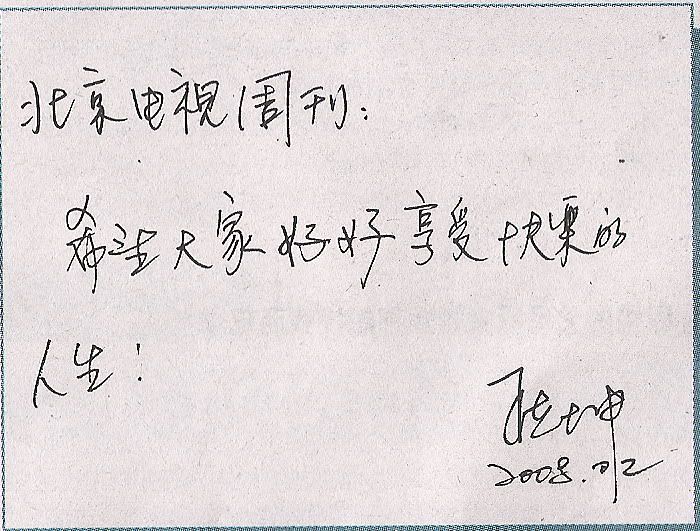 北京电视周刊:
希望大家好好享受快乐的
人生!
陆坤
2008.